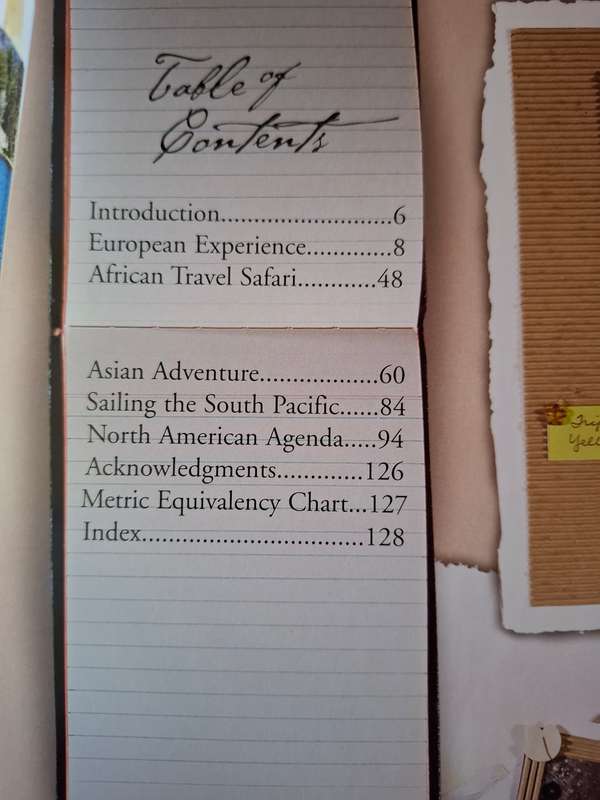 Table of
Contents
Introduction..........................6
European Experience.............8
African Travel Safari............48
Asian Adventure..................60
Sailing the South Pacific......84
North American Agenda.....94
Acknowledgments.............126
Metric Equivalency Chart...127
Index..................................128